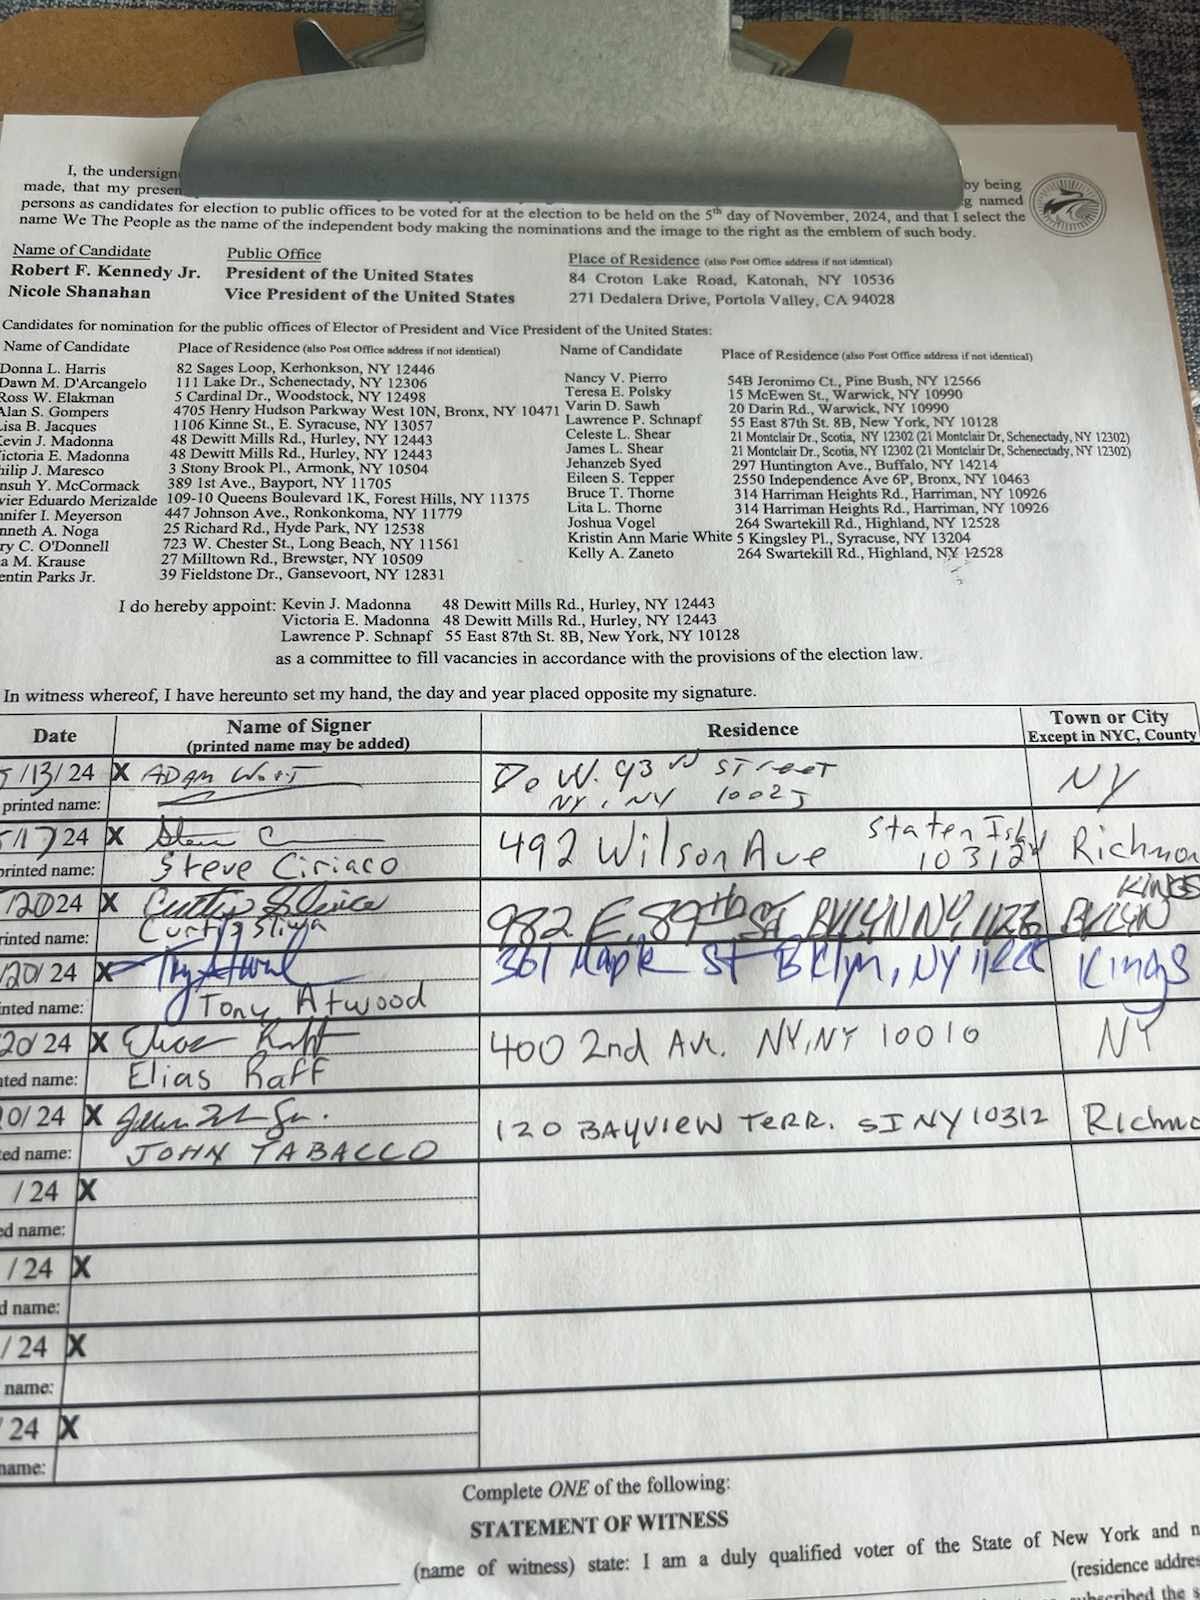 I, the undersign
made, that my presen by being
persons as candidates for election to public offices to be voted for at the election to be held on the 5th day of November, 2024, and that I select the
name We The People as the name of the independent body making the nominations and the image to the right as the emblem of such body.
g named
Name of Candidate Public Office Place of Residence (also Post Office address if not identical)
Robert F. Kennedy Jr. President of the United States 84 Croton Lake Road, Katonah, NY 10536
Nicole Shanahan Vice President of the United States 271 Dedalera Drive, Portola Valley, CA 94028
Candidates for nomination for the public offices of Elector of President and Vice President of the United States:
Name of Candidate Place of Residence (also Post Office address if not identical) Name of Candidate Place of Residence (also Post Office address if not identical)
Donna L. Harris 82 Sages Loop, Kerhonkson, NY 12446 Nancy V. Pierro 54B Jeronimo Ct., Pine Bush, NY 12566
Dawn M. D'Arcangelo 111 Lake Dr., Schenectady, NY 12306 Teresa E. Polsky 15 McEwen St., Warwick, NY 10990
Ross W. Elakman 5 Cardinal Dr., Woodstock, NY 12498 Varin D. Sawh 20 Darin Rd., Warwick, NY 10990
Alan S. Gompers 4705 Henry Hudson Parkway West 10N, Bronx, NY 10471 Lawrence P. Schnapf 55 East 87th St. 8B, New York, NY 10128
isa B. Jacques 1106 Kinne St., E. Syracuse, NY 13057 Celeste L. Shear 21 Montclair Dr., Scotia, NY 12302 (21 Montclair Dr, Schenectady, NY 12302)
Kevin J. Madonna 48 Dewitt Mills Rd., Hurley, NY 12443 James L. Shear 21 Montclair Dr., Scotia, NY 12302 (21 Montclair Dr, Schenectady, NY 12302)
ictoria E. Madonna 48 Dewitt Mills Rd., Hurley, NY 12443 Jehanzeb Syed 297 Huntington Ave., Buffalo, NY 14214
hilip J. Maresco 3 Stony Brook Pl., Armonk, NY 10504 Eileen S. Tepper 2550 Independence Ave 6P, Bronx, NY 10463
nsuh Y. McCormack 389 1st Ave., Bayport, NY 11705 Bruce T. Thorne 314 Harriman Heights Rd., Harriman, NY 10926
vier Eduardo Merizalde 109-10 Queens Boulevard 1K, Forest Hills, NY 11375 Lita L. Thorne 314 Harriman Heights Rd., Harriman, NY 10926
nnifer I. Meyerson 447 Johnson Ave., Ronkonkoma, NY 11779 Joshua Vogel 264 Swartekill Rd., Highland, NY 12528
nneth A. Noga 25 Richard Rd., Hyde Park, NY 12538 Kristin Ann Marie White 5 Kingsley Pl., Syracuse, NY 13204
ry C. O'Donnell 723 W. Chester St., Long Beach, NY 11561 Kelly A. Zaneto 264 Swartekill Rd., Highland, NY 12528
a M. Krause 27 Milltown Rd., Brewster, NY 10509
entin Parks Jr. 39 Fieldstone Dr., Gansevoort, NY 12831
I do hereby appoint: Kevin J. Madonna 48 Dewitt Mills Rd., Hurley, NY 12443
Victoria E. Madonna 48 Dewitt Mills Rd., Hurley, NY 12443
Lawrence P. Schnapf 55 East 87th St. 8B, New York, NY 10128
as a committee to fill vacancies in accordance with the provisions of the election law.
In witness whereof, I have hereunto set my hand, the day and year placed opposite my signature.
Date Name of Signer (printed name may be added) Residence Town or City Except in NYC, County
/13/24 X ADAM W. 93rd Street NY
printed name: NY, NY
/17/24 X 492 Wilson Ave Staten Isl 10312 Richmon
printed name: Steve Ciriaco
/2024 X 982 E. 89th St BKLYN NY, BKLYN KINGS
rinted name: Curtis Sliwa
/20/24 X 361 Maple St Bklyn, NY Kings
inted name: Tony Atwood
20/24 X 400 2nd Ave. NY, NY 10010 NY
nted name: Elias Raff
0/24 X 120 BAYVIEW TERR. SI NY 10312 Richmo
ted name: JOHN TABACCO
/24 X
ed name:
/24 X
d name:
/24 X
name:
/24 X
name:
Complete ONE of the following:
STATEMENT OF WITNESS
(name of witness) state: I am a duly qualified voter of the State of New York and n
(residence addres
subscribed the s